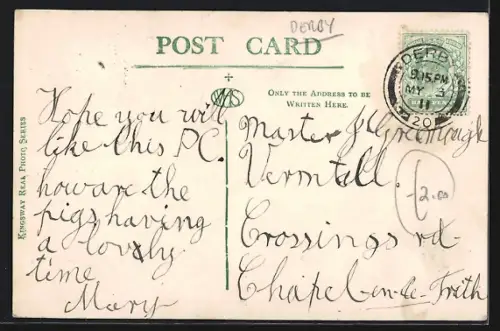 DERBY
POST CARD
ONLY THE ADDRESS TO BE
WRITTEN HERE.
KINGSWAY REAL PHOTO SERIES
Hope you will
like this P.C.
how are the
pigs having
a lovly
time
Mary
DERBY
9.15 PM
MY 3
11
20
HALFPENNY
Master
Vermtell.
Crossings rd
Chapel-en-le-Frith
-2.00